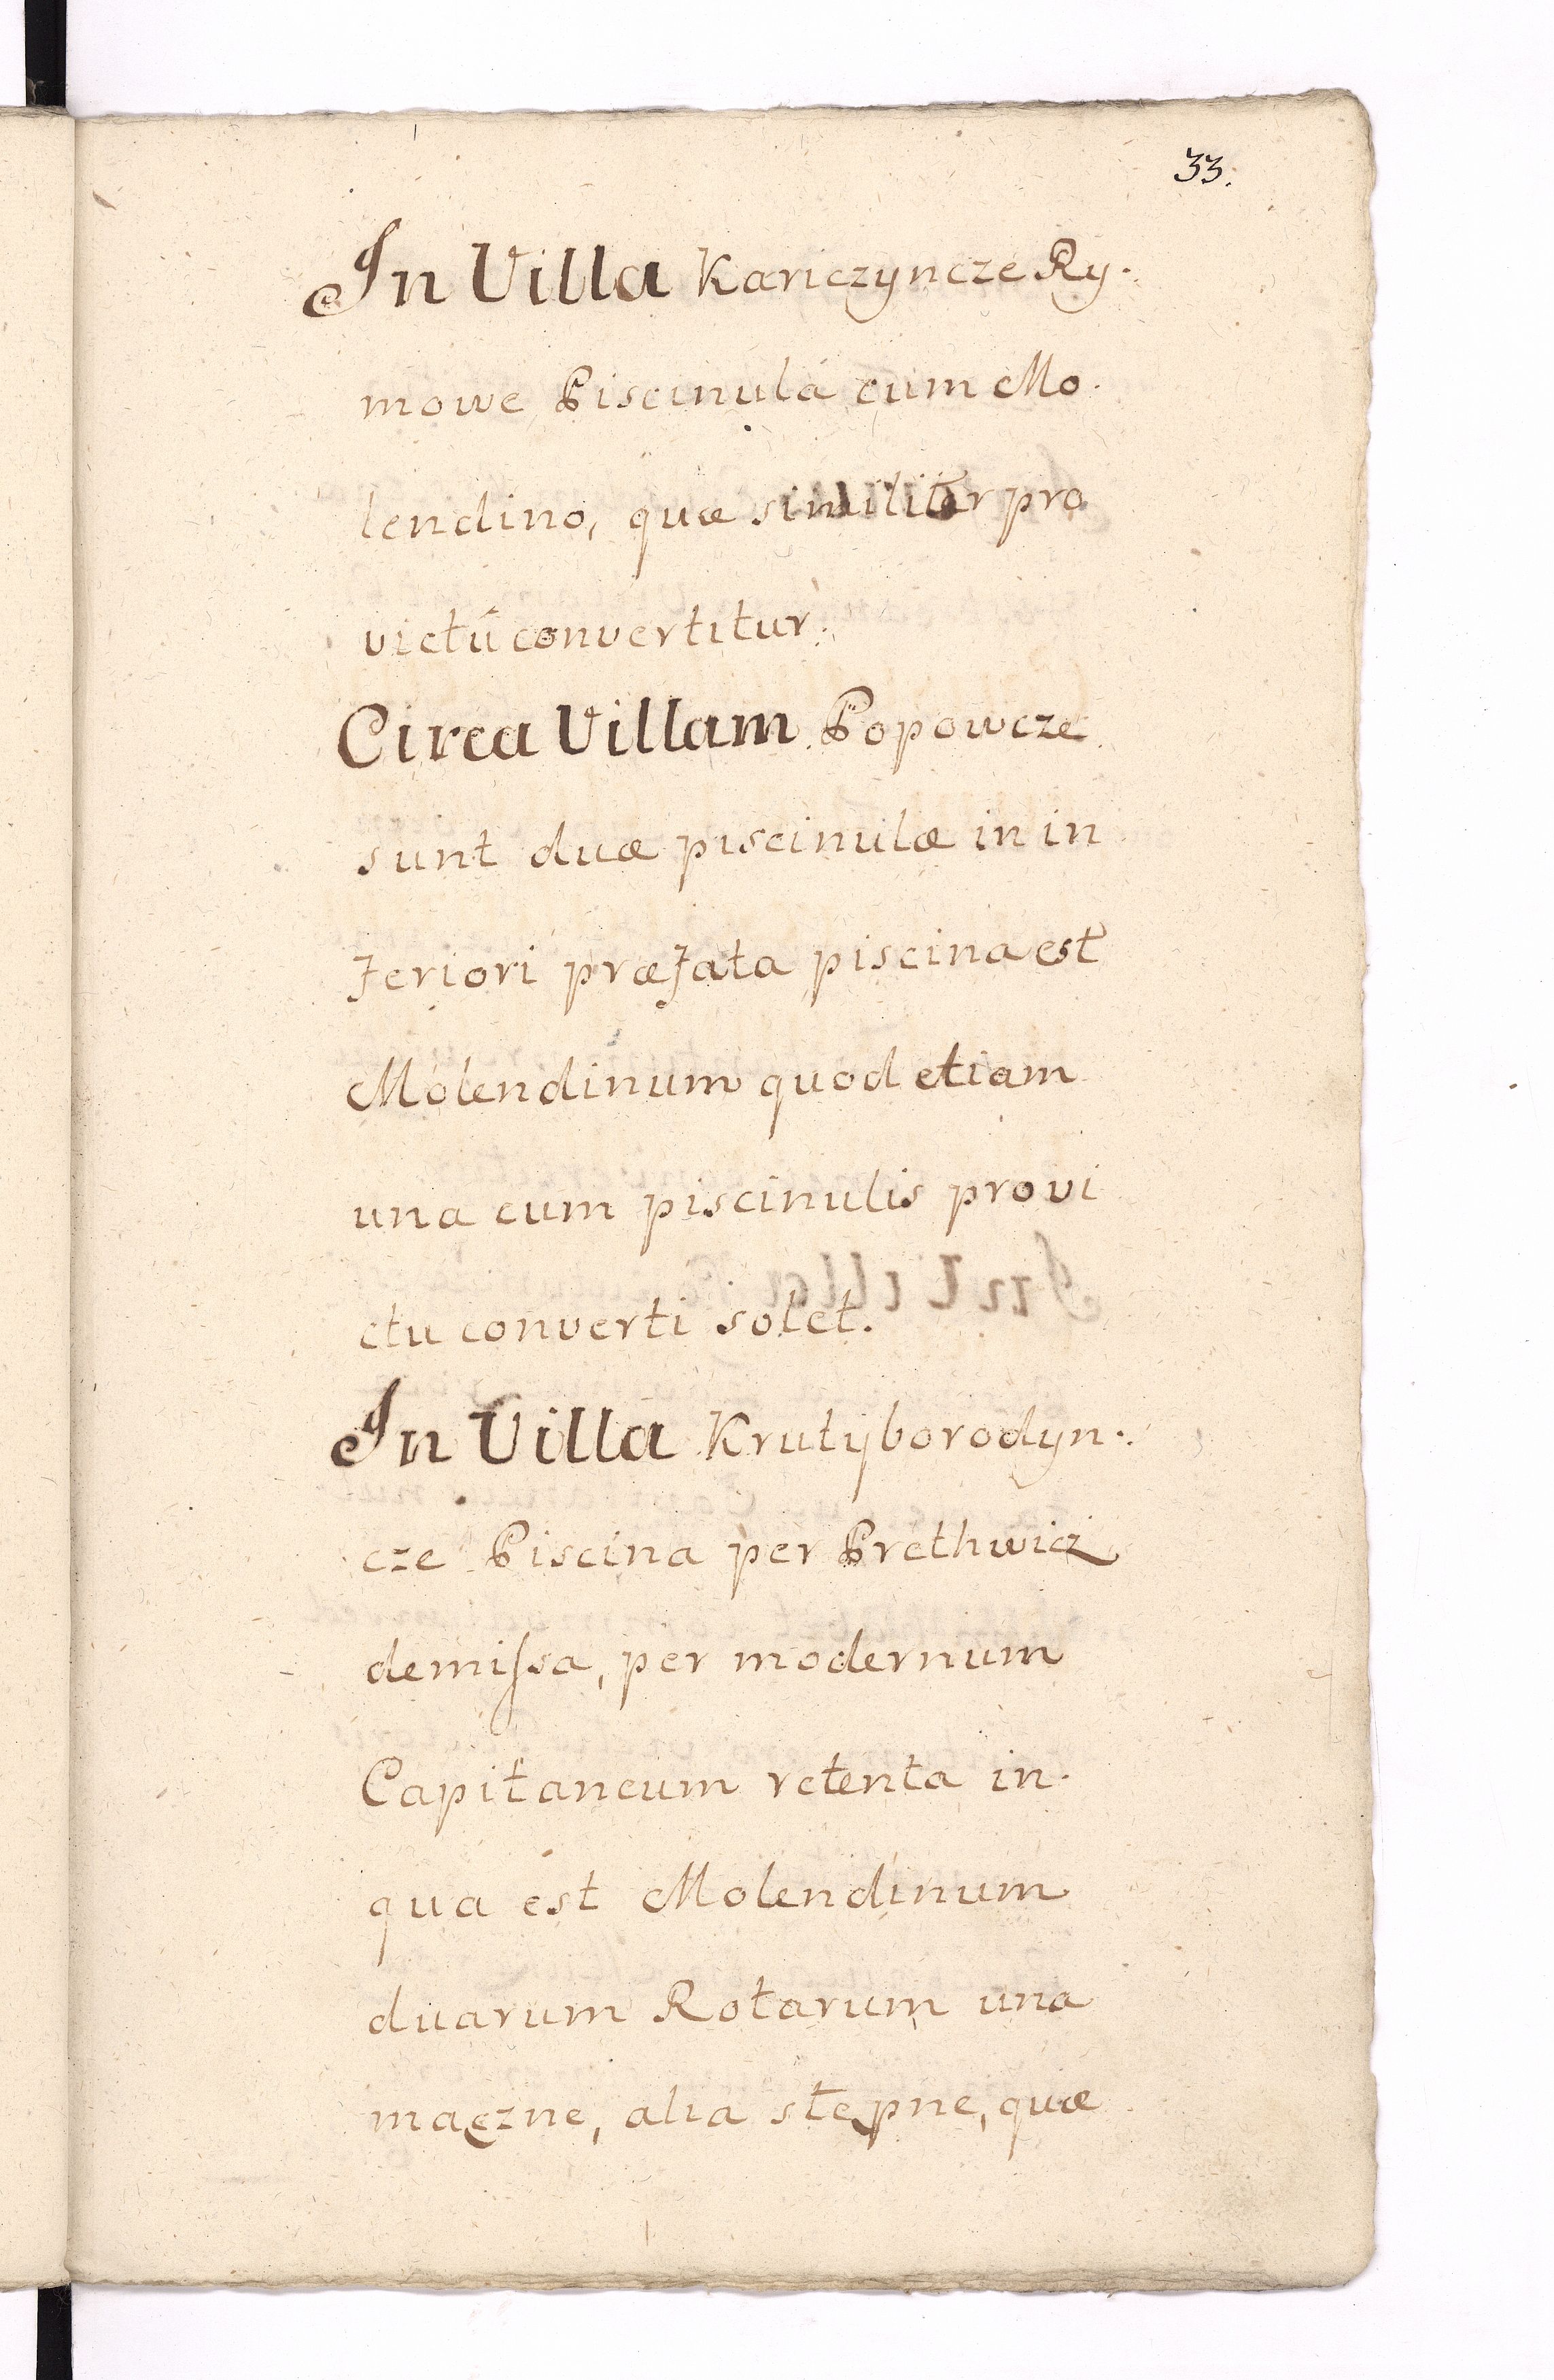 33.
In Villa Kariczyncze Ry.
mowe Piscinula cum Mo.
lendino, quæ similiter pro
victū convertitur.
Circa Villam Popowcze
sunt duæ piscinulæ in in
feriori præfata piscina est
Molendinum quod etiam
una cum piscinulis pro vi
ctu converti solet.
In Villa Krutyborodyn.
cze Piscina per Prethwicz
demissa, per modernum
Capitaneum retenta in.
qua est Molendinum
duarum Rotarum una
maęzne, alia stępne, quæ